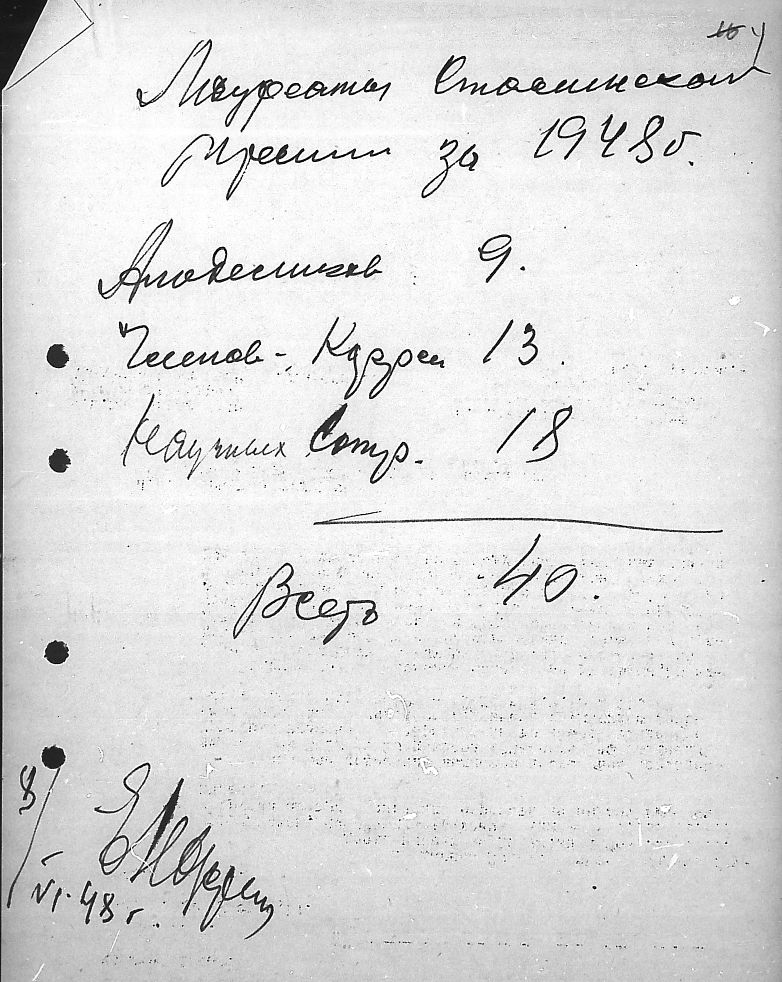 Лауреаты Сталинской
премии за 1948г.
Академиков 9.
Членов-Корресп 13.
Научных Сотр. 18
Всего 40.
8/VI-48 г.